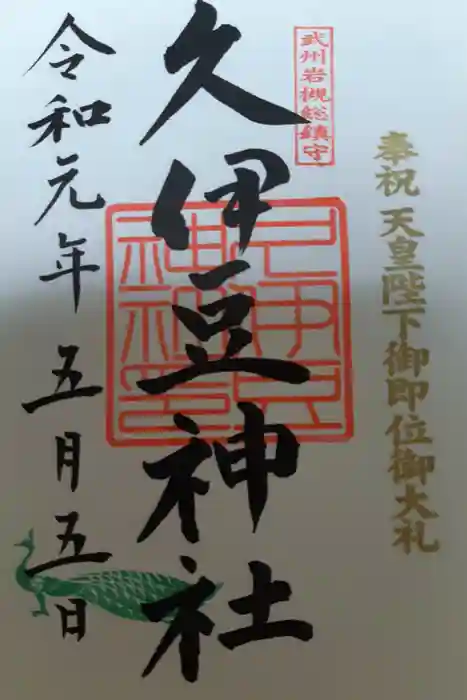 奉祝 天皇陛下御即位御大礼
武州岩槻総鎮守
久伊豆神社
令和元年 五月五日